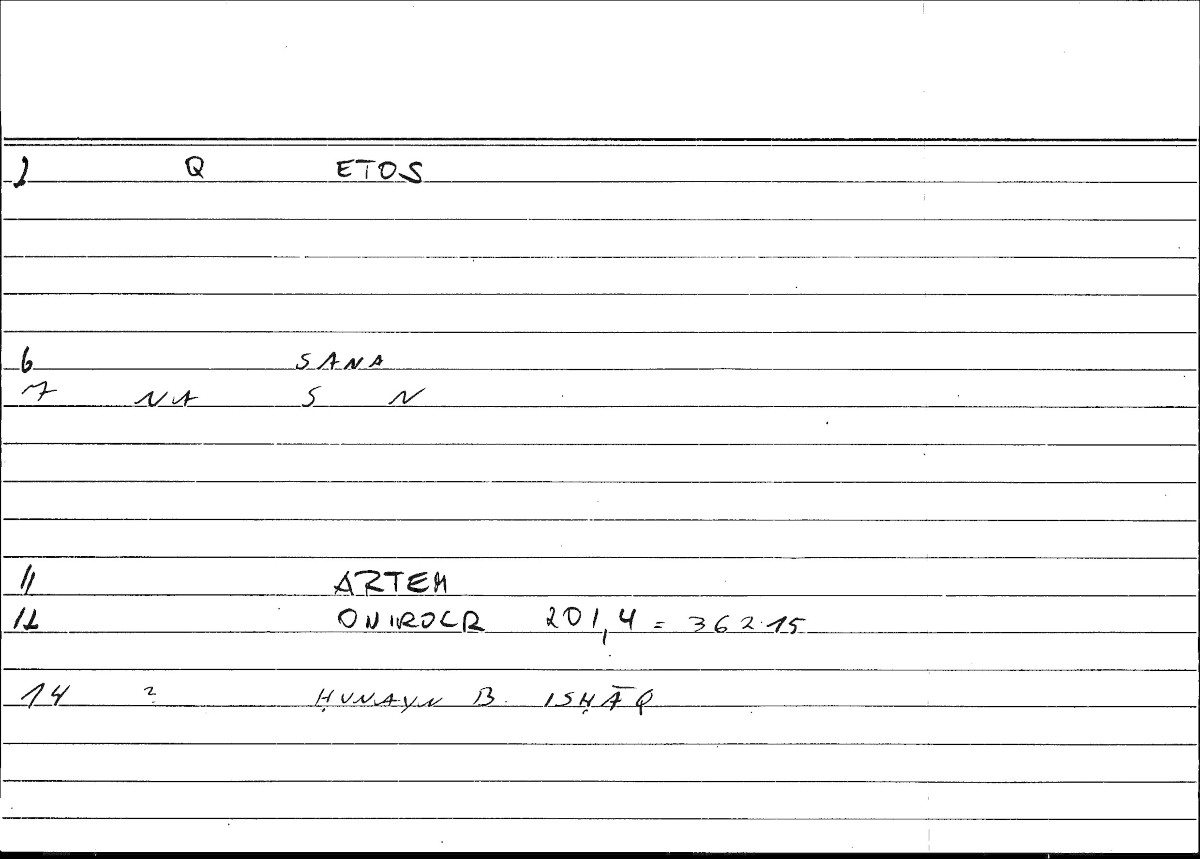 1 Q ETOS
6 SANA
7 NA S N
11 ARTEM
12 ONIROCR 201,4 = 362.15
14 2 ḤUNAYN B. ISḤĀQ